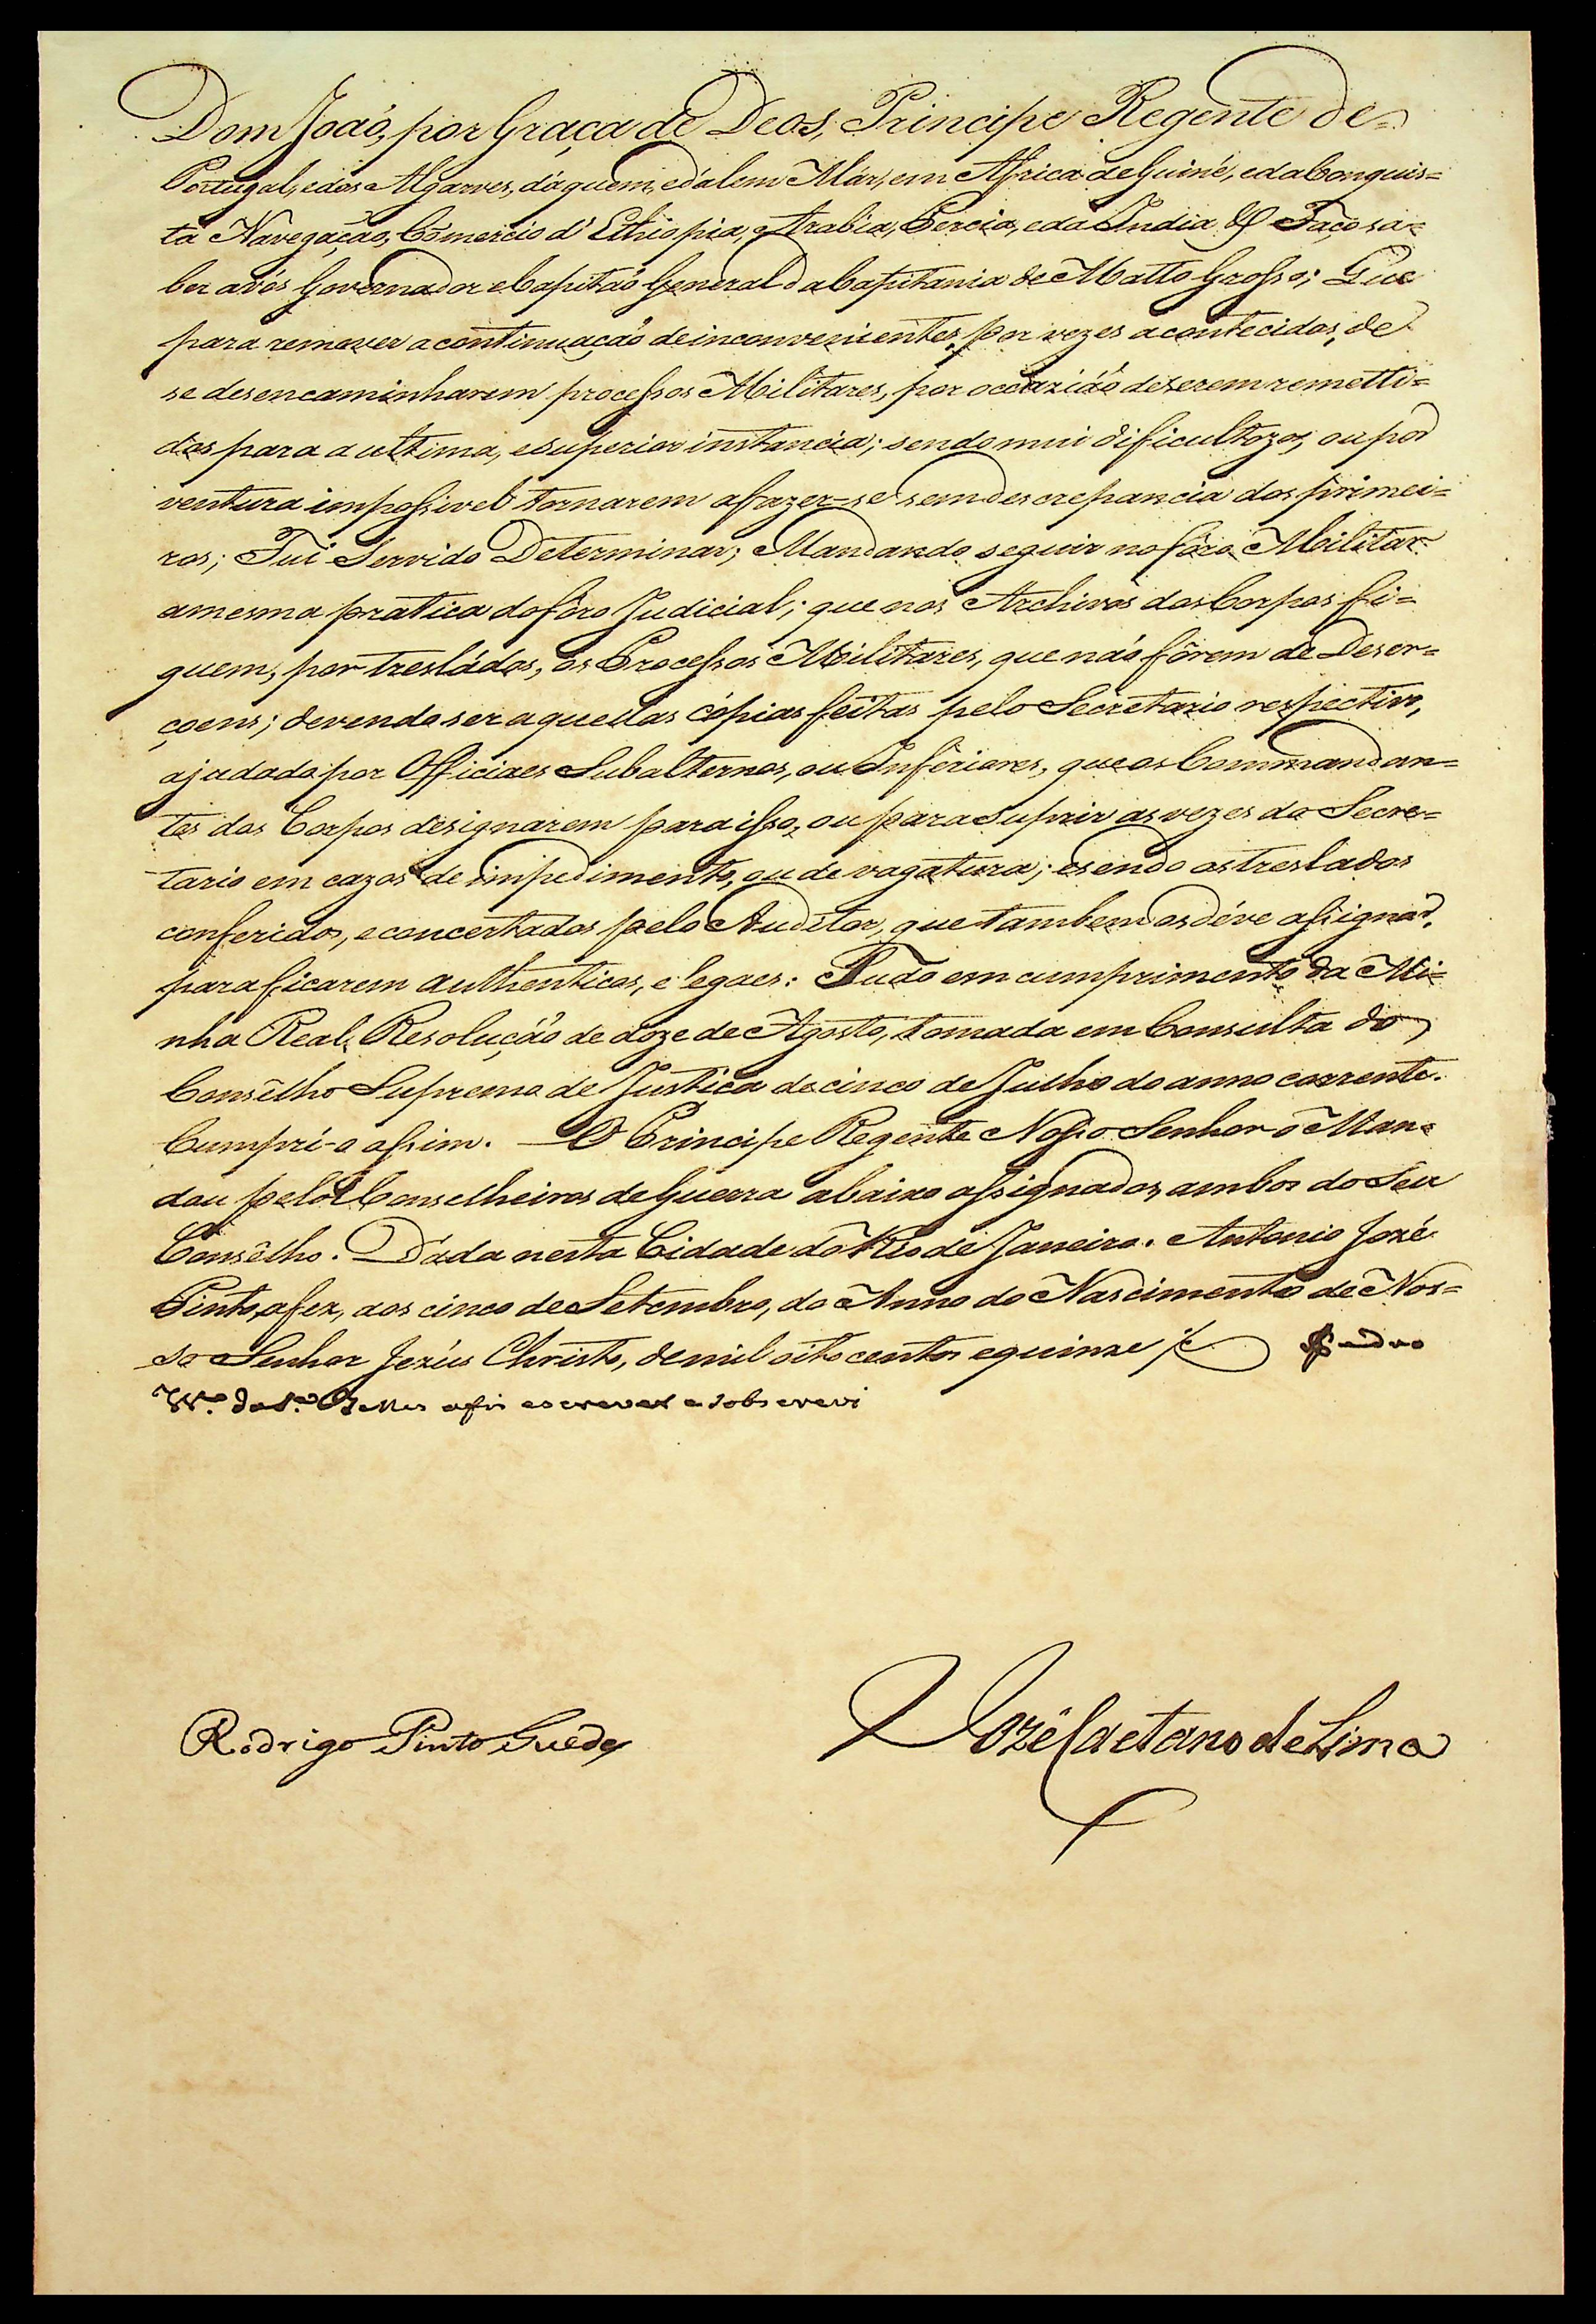 Dom Joaõ, por Graça de Deos, Principe Regente de=
Portugal, e dos Algarves, d'áquem, e d'alem Már, em Africa de Guiné, e da Conquis=
ta Navegaçaõ, Cõmercio d'Ethiopia, Arabia, Percia, e da India &. Faço sa=
ber a vós Governador e Capitaõ General da Capitania de Matto Grosso; Que
para remover a continuaçaõ de inconvenientes, por vezes acontecidos, de
se desencaminharem processos Militares, por occaziaõ de serem remetti=
dos para a ultima, e superior instancia; sendo mui dificultozo, ou por
ventura impossivel tornarem a fazer-se sem descrepancia dos primei=
ros; Fui Servido Determinar; Mandando seguir no fôro Militar
a mesma pratica do fôro Judicial; que nos Archivos dos Corpos fi=
quem, por tresládos, os Processos Militares, que naõ fôrem de Deser=
çoens; devendo ser aquellas cópias feitas pelo Secretario respectivo,
ajudado por Officiaes Subalternos, ou Inferiores, que os Commandan=
tes dos Corpos designarem para isso, ou para suprir as vezes do Secre=
tario em cazos de impedimento, ou de vagatura; e sendo os treslados
conferidos, e concertados pelo Auditor, que tambem os déve assignar,
para ficarem authenticos, e legaes: Tudo em cumprimento da Mi=
nha Real Resoluçaõ de doze de Agosto, tomada em Consulta do
Consêlho Supremo de Justiça de cinco de Julho do anno corrente.
Cumpri-o assim. O Principe Regente Nosso Senhor o Man=
dou pelos Conselheiros de Guerra abaixo assignados, ambos do Seu
Consêlho. Dáda nesta Cidade do Rio de Janeiro. Antonio Jozé
Pinto, a fez, aos cinco de Setembro, do Anno do Nascimento de Nos=
so Senhor Jezús Christo, de mil oito centos e quinze
a fis escrever e sobscrevi
Rodrigo Pinto Guedes
Jozé Caetano de Lima